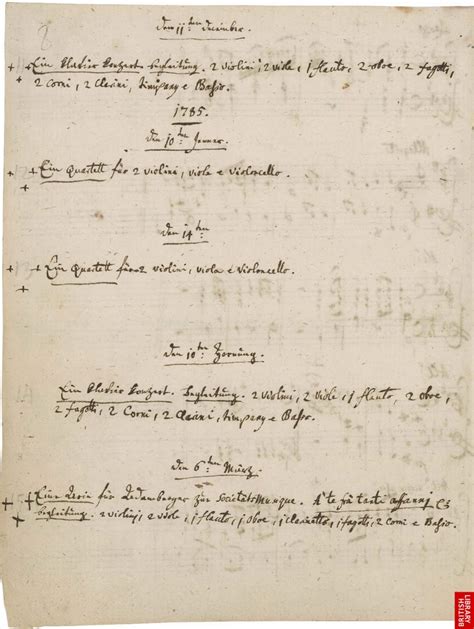 8
den 11ten December.
Ein klavier konzert. begleitung. 2 violini, 2 viole, 1 flauto, 2 oboe, 2 fagotti,
2 Corni, 2 Clarini, timpany e Baßo.
1785.
den 10ten Jenner.
Ein Quartett für 2 violini, viola e violoncello.
den 14ten
Ein Quartett für 2 violini, viola e violoncello.
den 10ten Hornung.
Ein klavier konzert. begleitung. 2 violini, 2 viole, 1 flauto, 2 oboe,
2 fagotti, 2 Corni, 2 Clarini, timpany e Baßo.
den 6ten März.
Eine Aria für Adamberger zur Societäts Musique. A te frà tanti affanni etc
begleitung. 2 violini, 2 viole, 1 flauto, 1 oboe, 1 clarinetto, 1 fagotti, 2 Corni e Baßo.
BRITISH
LIBRARY